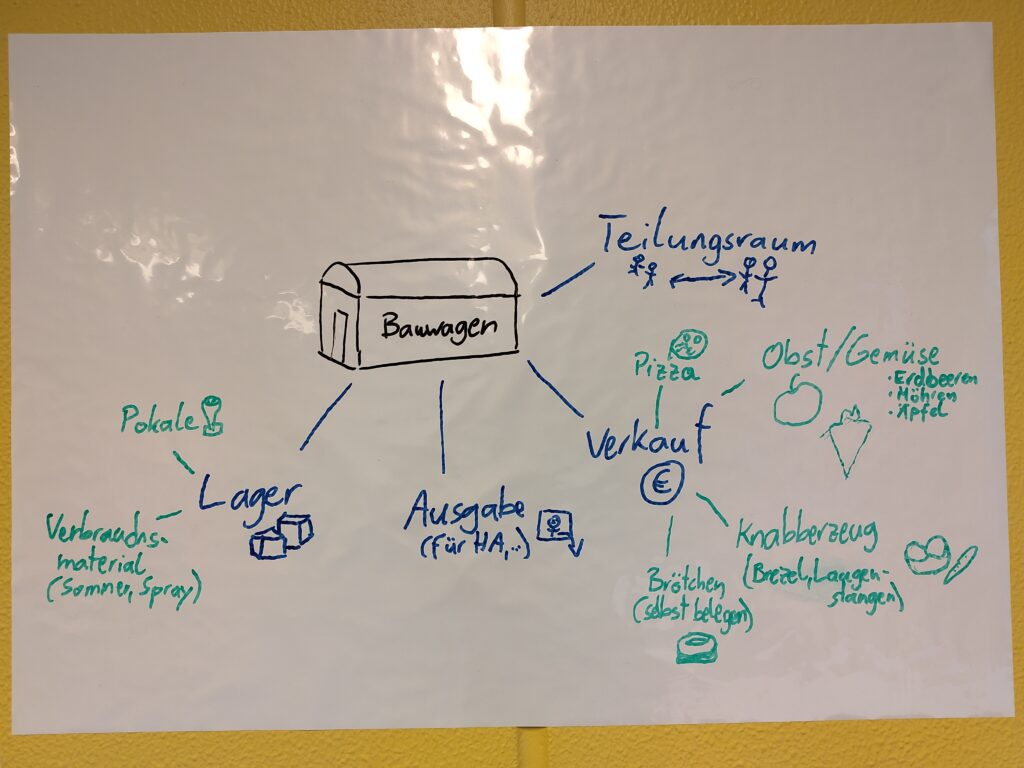 Teilungsraum
Bauwagen
Pizza
Obst/Gemüse
• Erdbeeren
• Möhren
• Äpfel
Pokale
Lager
Verbrauchs-
material
(Sommer, Spray)
Ausgabe
(für HA,...)
Verkauf
€
Knabberzeug
(Brezel, Laugen-
stangen)
Brötchen
(selbst belegen)